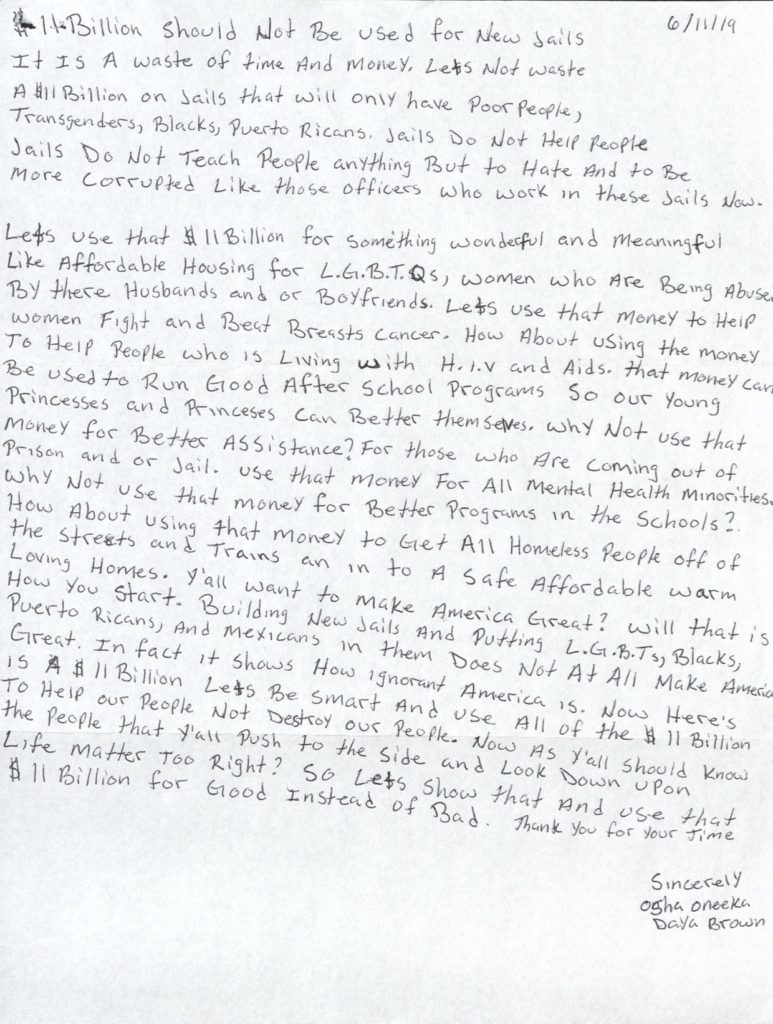 $11 Billion Should Not Be used for New Jails
6/11/19
It Is A waste of time And Money. Lets Not waste
A $11 Billion on Jails that will only have Poor People,
Transgenders, Blacks, Puerto Ricans. Jails Do Not Help People
Jails Do Not Teach People anything But to Hate And to Be
More Corrupted Like those officers who work in these Jails Now.
Lets use that $11 Billion for something wonderful and Meaningful
Like Affordable Housing for L.G.B.T.Qs, women who Are Being Abuse
By there Husbands and or Boyfriends. Lets use that Money to Help
women Fight and Beat Breasts Cancer. How About using the money
To Help People who is Living with H.I.V and Aids. that money can
Be used to Run Good After School Programs So our Young
Princesses and Princeses Can Better themselves. why Not use that
Money for Better ASSistance? For those who Are Coming out of
Prison and or Jail. use that money For All Mental Health Minorities.
why Not use that money for Better Programs in the Schools?
How About using that money to Get All Homeless People off of
the streets and Trains an in to A Safe Affordable warm
Loving Homes. Y'all want to make America Great? will that is
How You Start. Building New Jails And Putting L.G.B.Ts, Blacks,
Puerto Ricans, And Mexicans in them Does Not At All Make America
Great. In fact it shows How ignorant America is. Now Here's
is A $11 Billion Lets Be Smart And use All of the $11 Billion
To Help our People Not Destroy our People. Now As Y'all should know
the People that Y'all Push to the Side and Look Down upon
Life Matter Too Right? So Lets Show that And use that
$11 Billion for Good Instead of Bad. Thank You for Your Time
Sincerely
Ogha Oneeka
Daya Brown